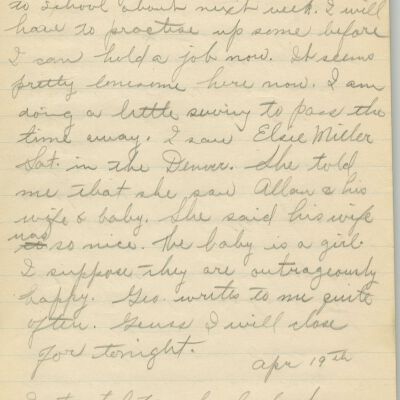 to school about next week. I will
have to practise up some before
I can hold a job now. It seems
pretty lonesome here now. I am
doing a little sewing to pass the
time away. I saw Elsie Miller
Sat. in the Denver. She told
me that she saw Allan & his
wife & baby. She said his wife
was so nice. The baby is a girl.
I suppose they are outrageously
happy. Geo. writes to me quite
often. Guess I will close
for tonight.
Apr 19th